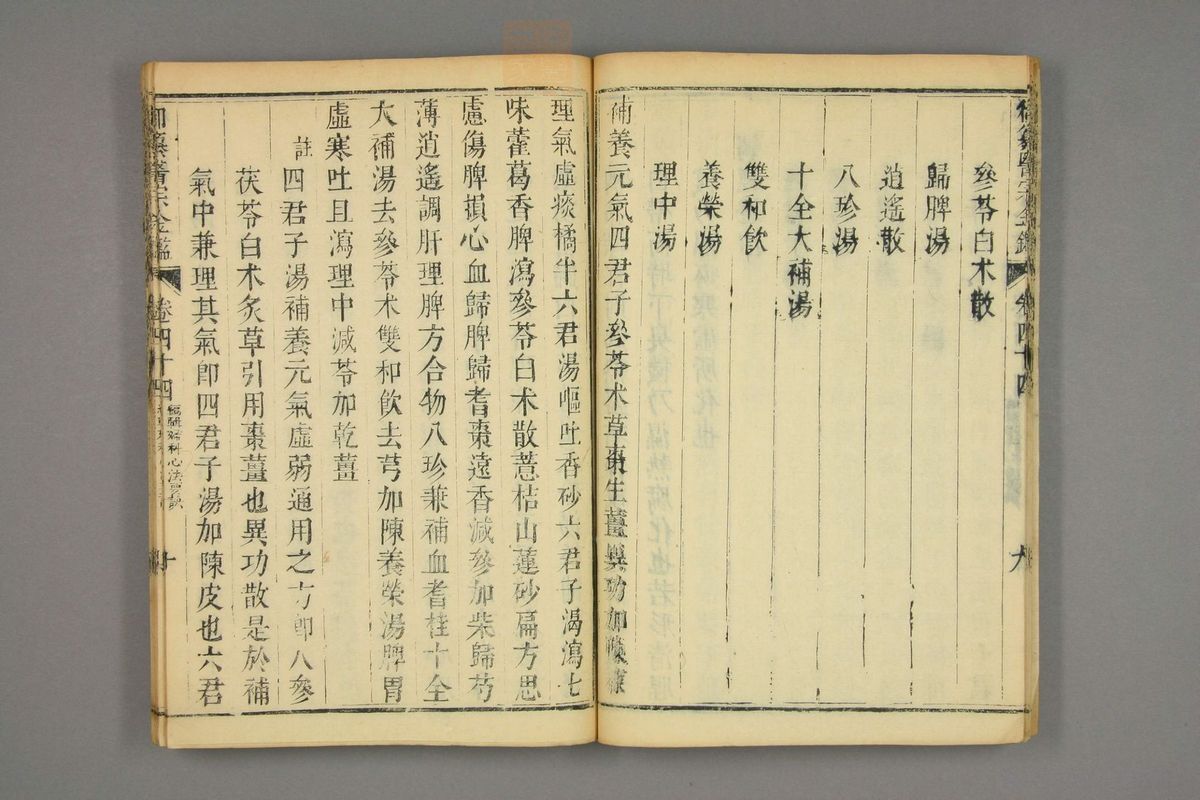 參苓白术散
歸脾湯
逍遙散
八珍湯
十全大補湯
雙和飲
養榮湯
理中湯
補養元氣四君子參苓术草棗生薑異功加陳
理氣虛痰橘半六君湯嘔吐香砂六君子渴瀉七
味藿葛香脾瀉參苓白术散薏桔山蓮砂扁方思
慮傷脾損心血歸脾歸耆棗遠香減參加柴歸芍
薄逍遙調肝理脾方合物八珍兼補血耆桂十全
大補湯去參苓术雙和飲去芎加陳養榮湯脾胃
虛寒吐且瀉理中減苓加乾薑
註 四君子湯補養元氣虛弱通用之方卽人參
茯苓白术炙草引用棗薑也異功散是於補
氣中兼理其氣卽四君子湯加陳皮也六君
御纂醫宗金鑑 卷四十四 編輯婦科心法要訣 十